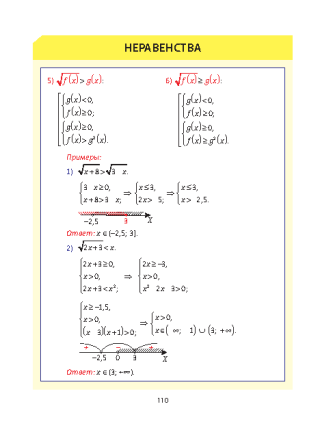 НЕРАВЕНСТВА
5) √f(x) > g(x):
6) √f(x) ≥ g(x):
[ { g(x)<0,
f(x)≥0;
{ g(x)≥0,
f(x)>g²(x).
[ { g(x)<0,
f(x)≥0;
{ g(x)≥0,
f(x)≥g²(x).
Примеры:
1) √x+8 > √3 x.
{ 3 x≥0,
x+8>3 x; ⇒ { x≤3,
2x> 5; ⇒ { x≤3,
x> 2,5.
−2,5 3 x
Ответ: x ∈ (−2,5; 3].
2) √2x+3 < x.
{ 2x+3≥0,
x>0,
2x+3<x²; ⇒ { 2x≥−3,
x>0,
x² 2x 3>0;
{ x≥−1,5,
x>0,
(x 3)(x+1)>0; ⇒ { x>0,
x∈( ∞; 1) ∪ (3; +∞).
+ − +
−2,5 0 3 x
Ответ: x ∈ (3; +∞).
110